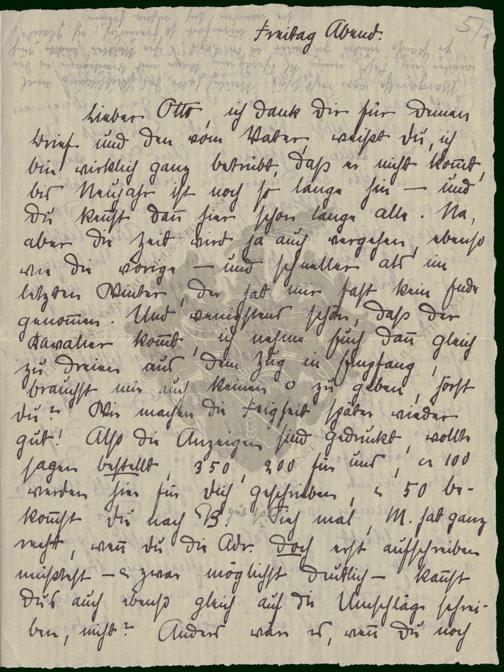 5/1
Freitag Abend.
Lieber Otto, ich dank Dir für Deinen
Brief und den vom Vater, weißt Du, ich
bin wirklich ganz betrübt, daß er nicht kom̄t,
bis Neujahr ist noch so lange hin — und
Du kennst dan̄ hier schon lange alle. Na,
aber die Zeit wird ja auch vergehen, ebenso
wie die vorige — und schneller als im
letzten Winter, der hat mir fast kein Ende
genom̄en. Und wenigstens schön, daß der
Kavalier kom̄t, ich nehme Euch dan̄ gleich
zu dreien aus dem Zug in Empfang,
brauchst mir auch keinen o zu geben, hörst
Du? Wir machen die Feigheit später wieder
gut! Also die Anzeigen sind gedruckt, wollte
sagen bestellt, 350, 200 für uns, 100
werden hier für Dich geschrieben, 50 be-
kom̄st Du nach B. Sieh mal, M. hat ganz
recht, wen̄ Du die Adr. doch erst aufschreiben
müßtest — zwar möglichst deutlich — kan̄st
Dus auch ebenso gleich auf die Umschläge schrei-
ben, nicht? Anders wär es, wen̄ Du noch